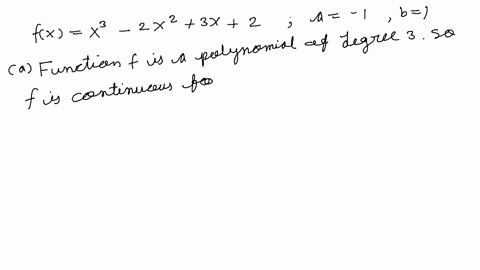 f(x) = x³ - 2x² + 3x + 2 ; a = -1 , b = 1
(a) Function f is a polynomial of degree 3. So
f is continuous fo